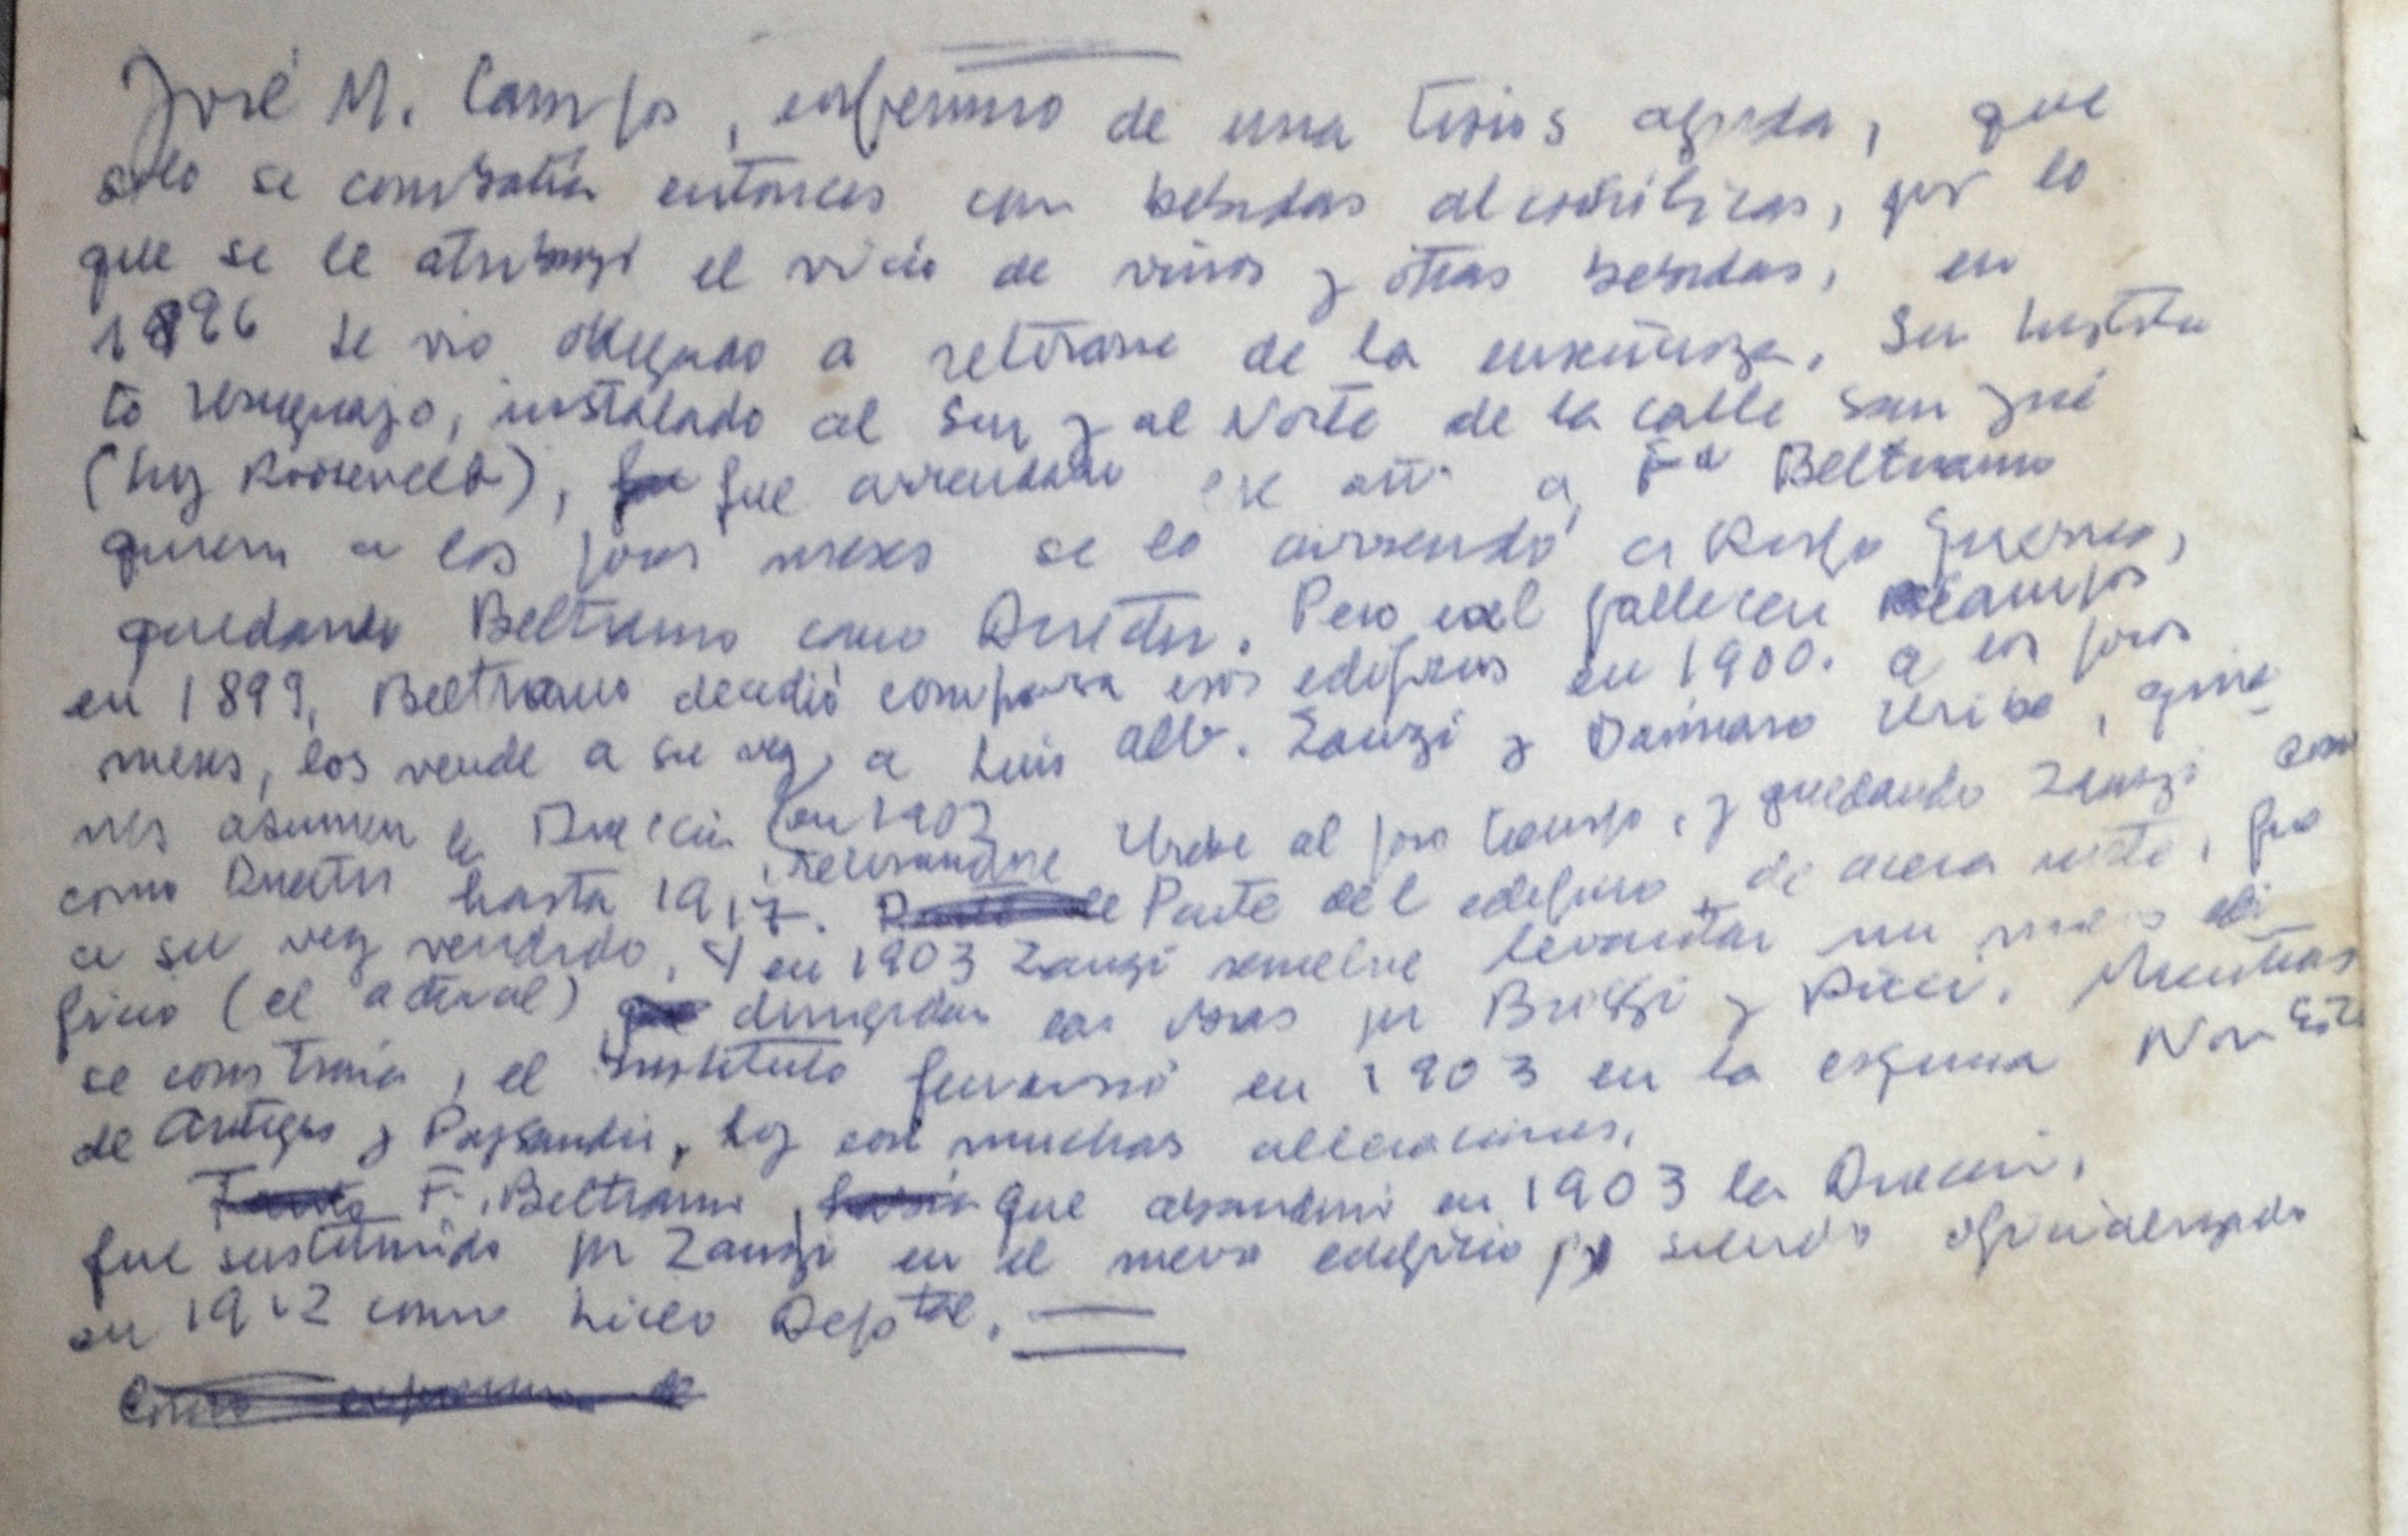 José M. Campos, enfermo de una tisis aguda, que
sólo se combatía entonces con bebidas alcohólicas, por lo
que se le atribuyó el vicio de vinos y otras bebidas, en
1896 se vio obligado a retirarse de la enseñanza. Su Institu
to Uruguayo, instalado al Sur y al Norte de la calle San José
(hoy Roosevelt), fue arrendado ese año a Fco Beltramo
quien a los pocos meses se lo arrendó a Guerra,
quedando Beltramo como Director. Pero al fallecer Campos
en 1899, Beltramo decidió comprar esos edificios en 1900. a los pocos
meses, los vende a su vez, a Luis Alb. Zanzi y Dámaso Uribe, quie
nes asumen la Dirección (en 1903
retirandose Uribe al poco tiempo, y quedando Zanzi com
como Director hasta 1917. Parte del edificio, de acera norte, fue
a su vez vendido. Y en 1903 Zanzi resuelve levantar un nuevo edi
ficio (el actual) dirigidas las obras por y Ricci. Mientras
se construía, el Instituto funcionó en 1903 en la esquina Nor Este
de Artigas y Paysandú, hoy con muchas alteraciones.
F. Beltramo, que abandonó en 1903 la Dirección,
fue sustituído por Zanzi en el nuevo edificio siendo oficializado
en 1912 como Liceo Deptal.